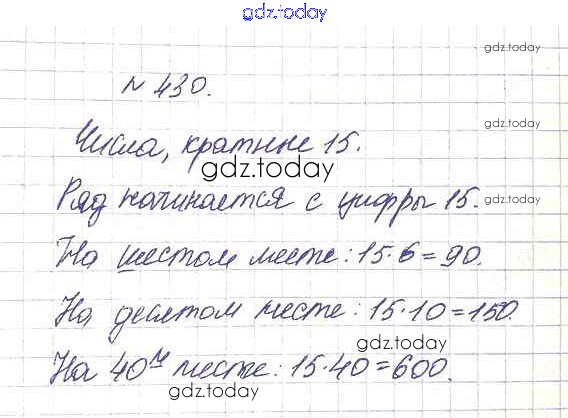 gdz.today
gdz.today
№ 430.
gdz.today
Числа, кратные 15.
gdz.today
Ряд начинается с цифры 15.
gdz.today
На шестом месте: 15·6=90.
gdz.today
На десятом месте: 15·10=150.
gdz.today
На 40м месте: 15·40=600.
gdz.today
gdz.today